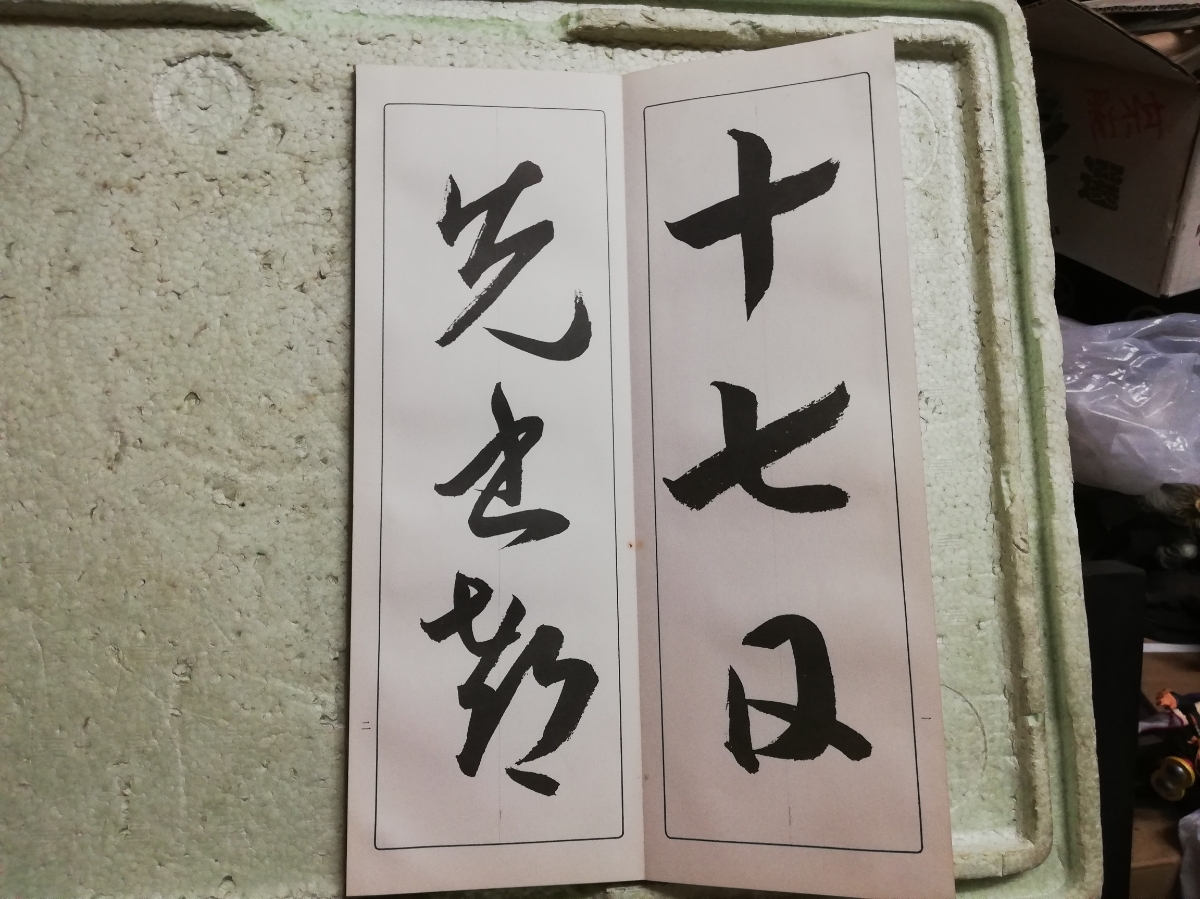 十七日
先書郗
一
二